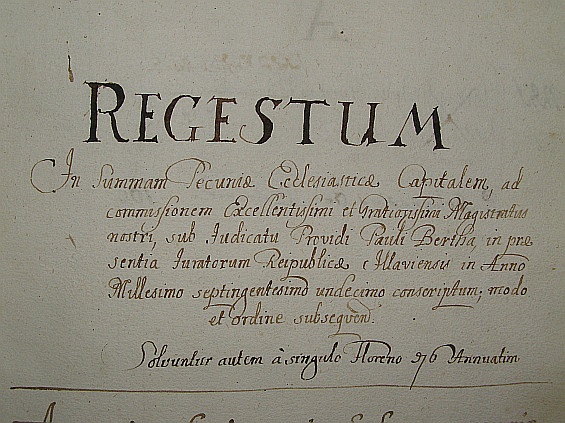 REGESTUM
In Summam Pecuniæ Ecclesiasticæ Capitalem, ad
commissionem Excellentissimi et Gratiosissimi Magistratus
nostri, sub Judicatu Providi Pauli Bertha, in præ
sentia Iuratorum Reipublicæ Illaviensis in Anno
Millesimo septingentesimo undecimo conscriptum; modo
et ordine subseqvend.
Solvuntur autem à singulo Floreno Annuatim